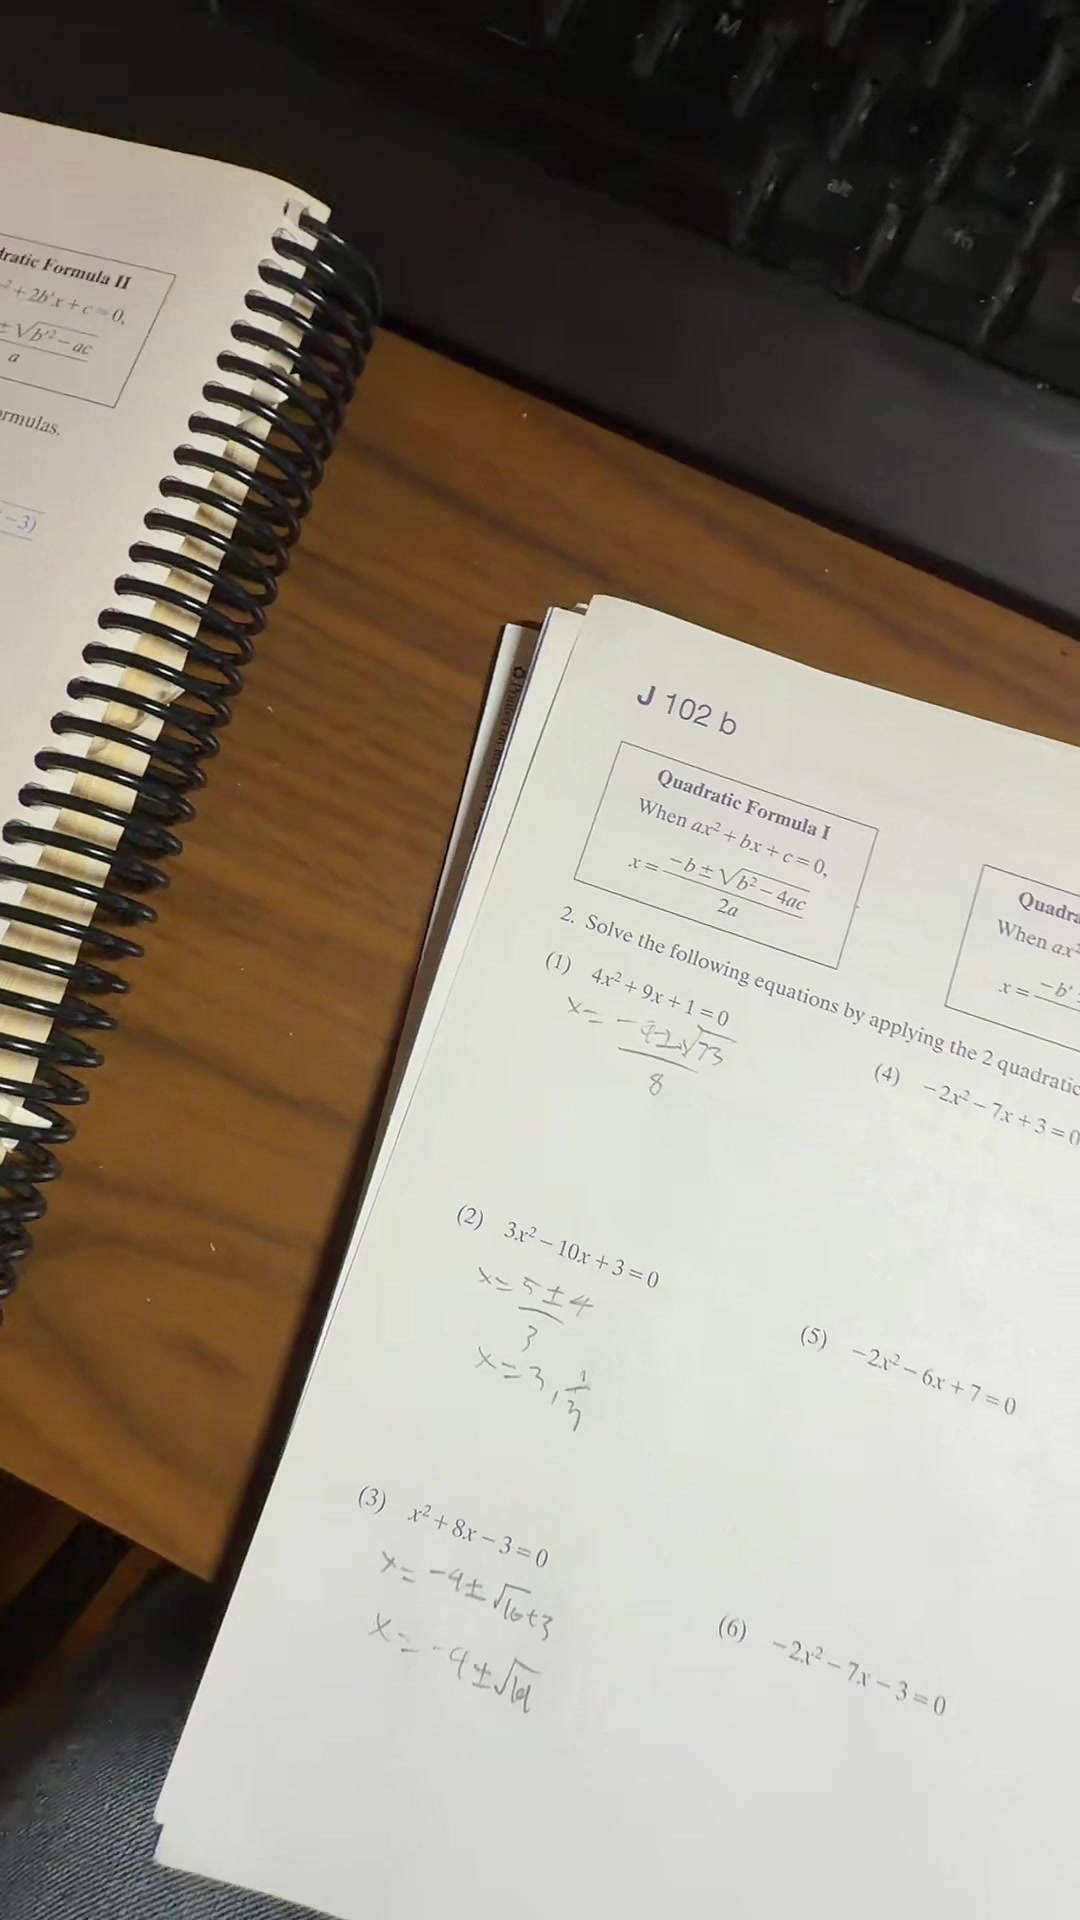 ratic Formula II
²+2b'x+c=0,
±√b'²−ac
a
ormulas.
−3)
J 102 b
Quadratic Formula I
When ax²+bx+c=0,
x= −b±√b²−4ac
2a
Quadra
When ax²
x= −b'
2. Solve the following equations by applying the 2 quadratic
(1) 4x²+9x+1=0
x= −9±√73
8
(2) 3x²−10x+3=0
x=5±4
3
x=3, 1/3
(3) x²+8x−3=0
x=−4±√16+3
x=−4±√19
(4) −2x²−7x+3=0
(5) −2x²−6x+7=0
(6) −2x²−7x−3=0
M
alt
fn